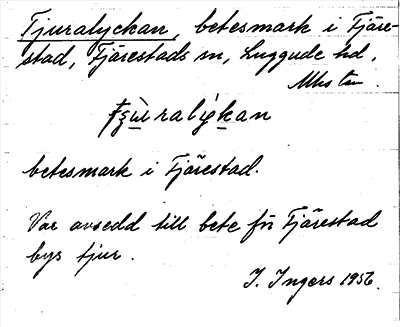 Tjuralyckan, betesmark i Fjäre-
stad, Fjärestads sn, Luggude hd,
betesmark i Fjärestad.
Var avsedd till bete för Fjärestad
bys tjur.
I. Ingers 1956.